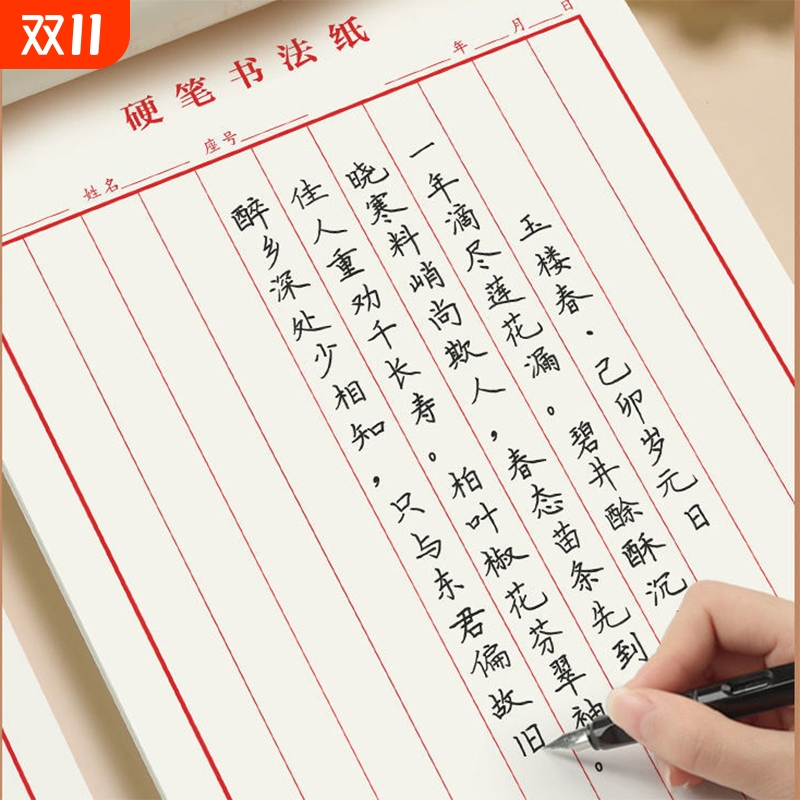 双11
硬笔书法纸
姓名 座号 年 月 日
玉楼春·己卯岁元日
一年滴尽莲花漏。碧井酴酥沉
晓寒料峭尚欺人，春态苗条先到
佳人重劝千长寿。柏叶椒花芬翠袖。
醉乡深处少相知，只与东君偏故旧